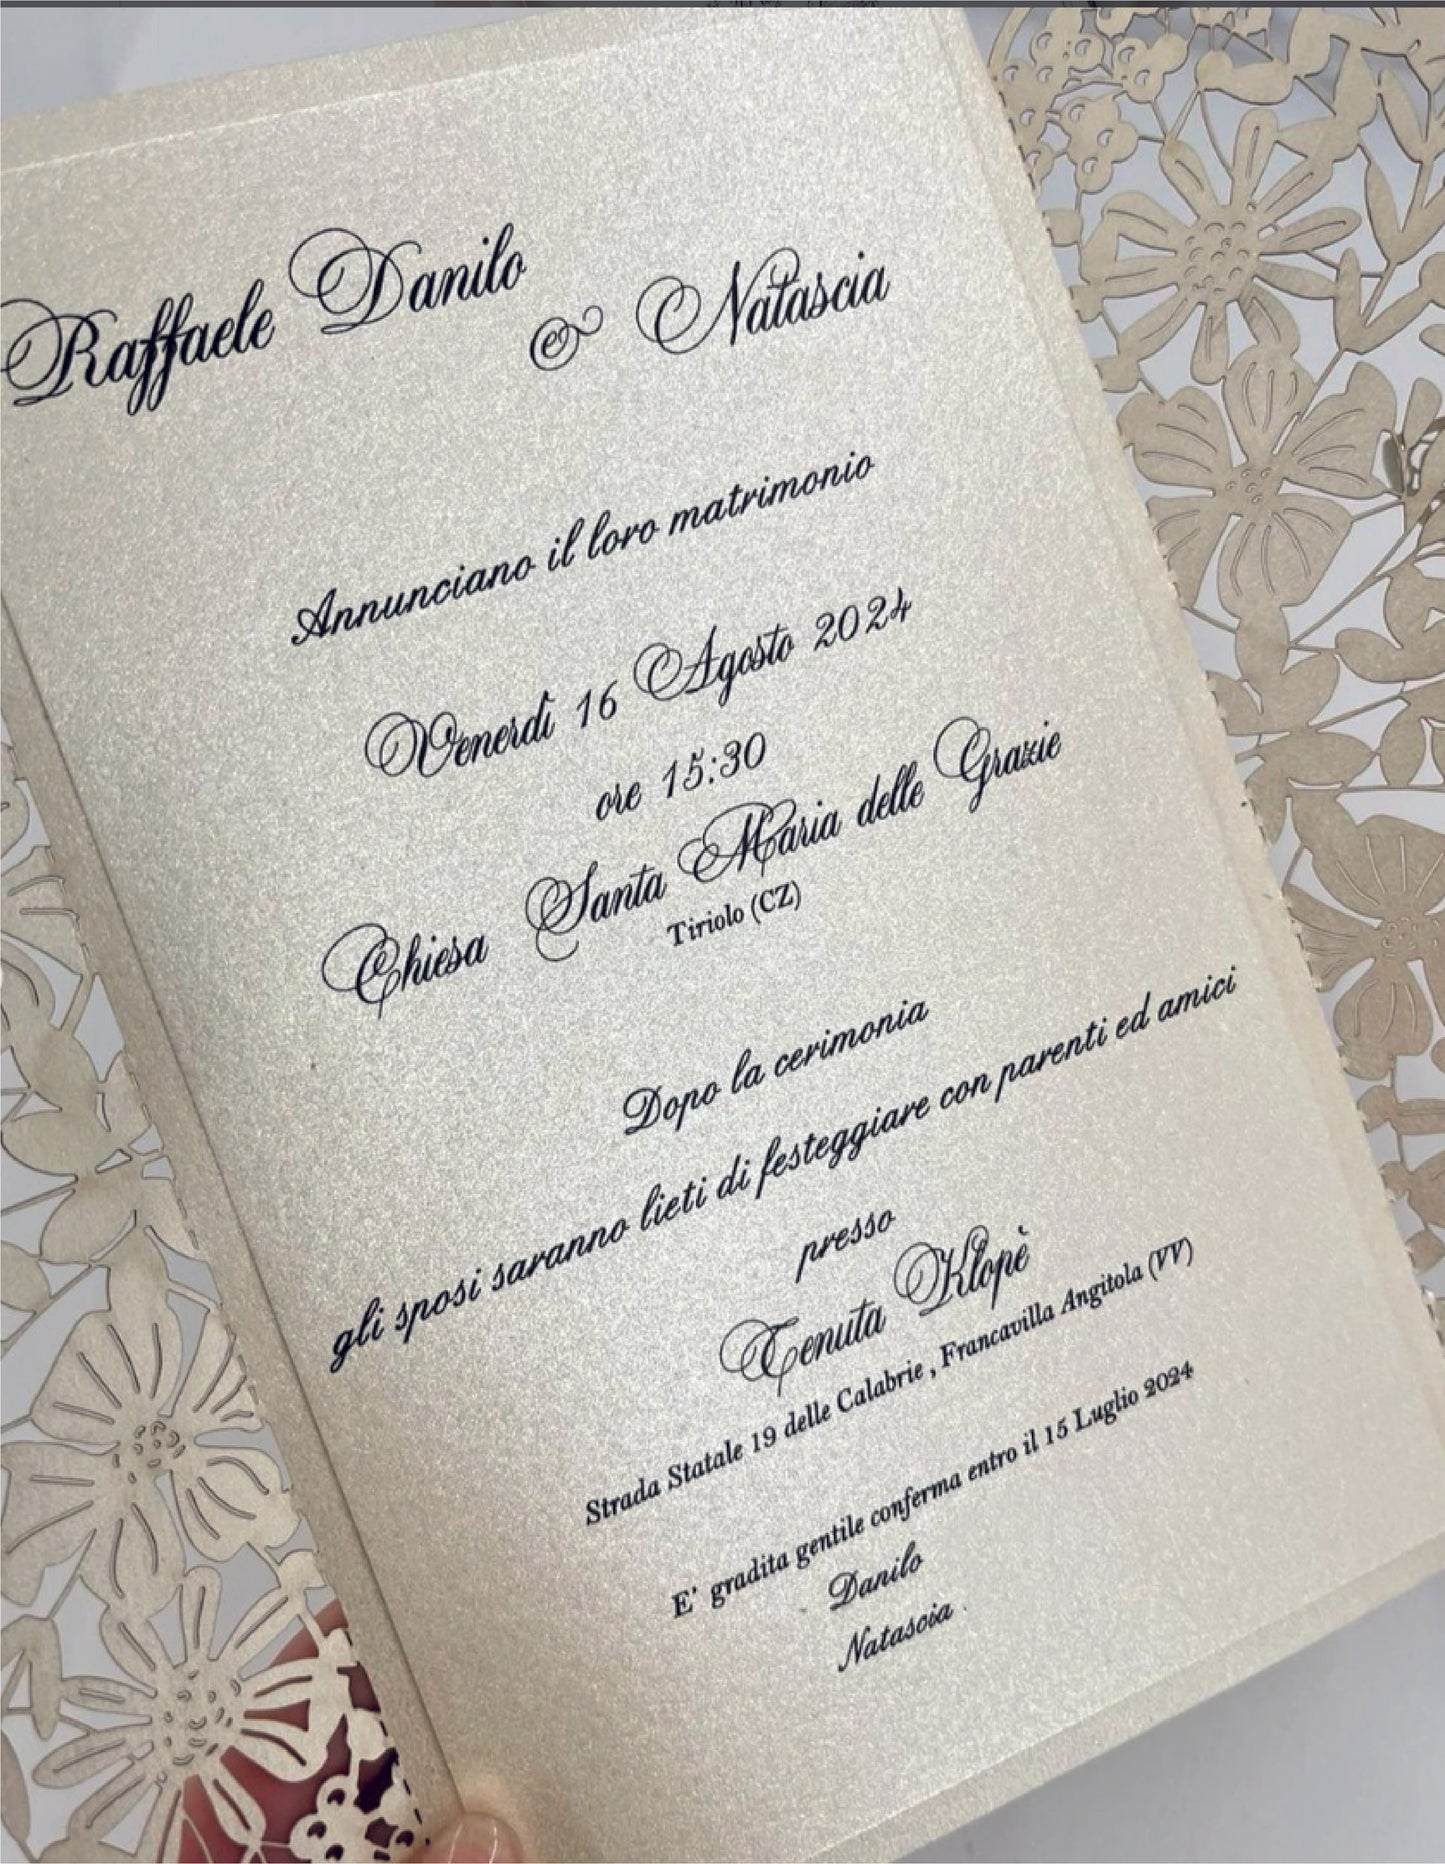 Raffaele Danilo & Natascia
Annunciano il loro matrimonio
Venerdì 16 Agosto 2024
ore 15:30
Chiesa Santa Maria delle Grazie
Tiriolo (CZ)
Dopo la cerimonia
gli sposi saranno lieti di festeggiare con parenti ed amici
presso
Tenuta Klopè
Strada Statale 19 delle Calabrie , Francavilla Angitola (VV)
E' gradita gentile conferma entro il 15 Luglio 2024
Danilo
Natascia